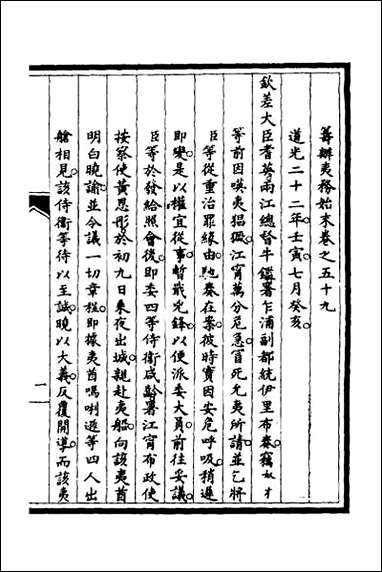 籌辦夷務始末卷之五十九
道光二十二年壬寅七月癸亥
欽差大臣耆英兩江總督牛鑑署乍浦副都統伊里布奏竊奴才
等前因嘆夷猖獗江甯萬分危急冒死允夷所請並乞將
臣等從重治罪緣由馳奏在案彼時實因安危呼吸稍遲
即變是以權宜從事暫戢兇鋒以便派委大員前往妥議
臣等於發給照會後即委四等侍衛咸齡署江甯布政使
按察使黃恩彤於初九日乘夜出城親赴夷艘向該夷酋
明白曉諭並令議一切章程即據夷酋嗎唎遜等四人出
艙相見該侍衛等待以至誠曉以大義反覆開導而該夷
一